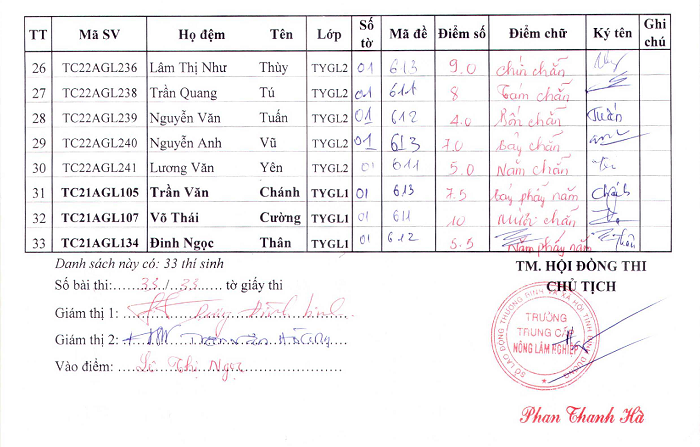 TT Mã SV Họ đệm Tên Lớp Số tờ Mã đề Điểm số Điểm chữ Ký tên Ghi chú
26 TC22AGL236 Lâm Thị Như Thùy TYGL2 01 613 9.0 chín chẵn
27 TC22AGL238 Trần Quang Tú TYGL2 01 611 8 Tám chẵn
28 TC22AGL239 Nguyễn Văn Tuấn TYGL2 01 612 4.0 Bốn chẵn Tuấn
29 TC22AGL240 Nguyễn Anh Vũ TYGL2 01 613 7.0 Bảy chẵn
30 TC22AGL241 Lương Văn Yên TYGL2 01 611 5.0 Năm chẵn
31 TC21AGL105 Trần Văn Chánh TYGL1 01 613 7.5 Bảy phẩy năm Chánh
32 TC21AGL107 Võ Thái Cường TYGL1 01 611 10 Mười chẵn
33 TC21AGL134 Đinh Ngọc Thân TYGL1 01 612 5.5 Năm phẩy năm Thân
Danh sách này có: 33 thí sinh
Số bài thi:......33../..33...... tờ giấy thi
Giám thị 1:
Giám thị 2:
Vào điểm: Lê Thị Ngọc
TM. HỘI ĐỒNG THI
CHỦ TỊCH
TRƯỜNG
TRUNG CẤP
NÔNG LÂM NGHIỆP
Phan Thanh Hà